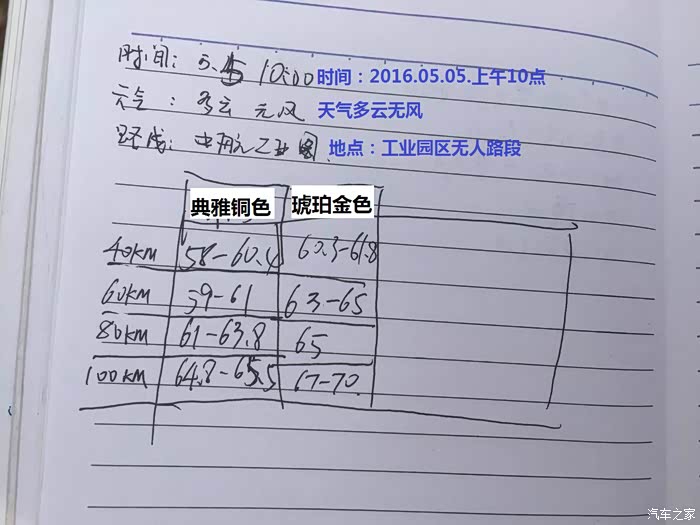 时间：5.5 10:00 时间：2016.05.05.上午10点
天气：多云 无风 天气多云无风
路线：中航工业园 地点：工业园区无人路段
典雅铜色 琥珀金色
40KM 58-60.4 60.3-61.8
60KM 59-61 63-65
80KM 61-63.8 65
100KM 64.8-65.5 67-70
汽车之家